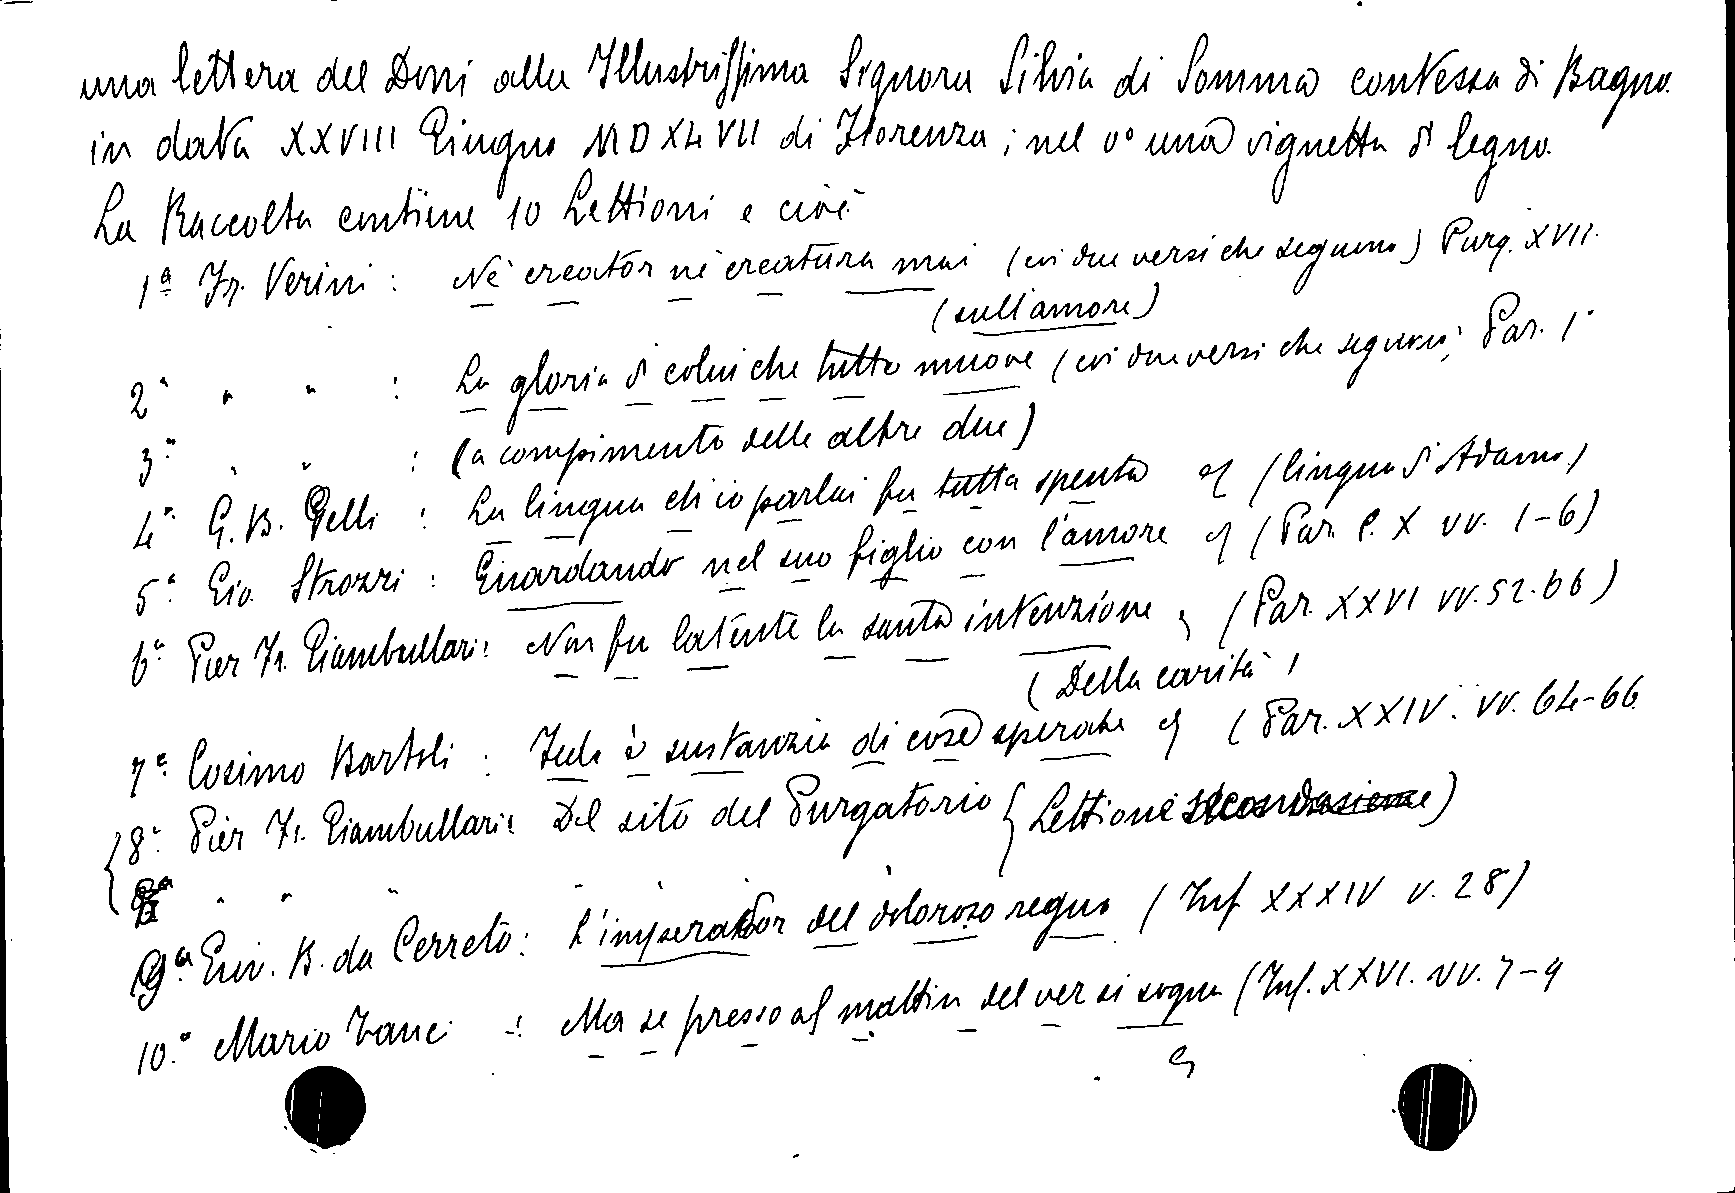 una lettera del Doni alla Illustrissima Signora Silvia di Somma contessa di Bagno
in data XXVIII Giugno MDXLVII di Fiorenza; nel vº una vignetta di legno.
La Raccolta contiene 10 Lettioni e cioè
1ª Fr. Verini : Nè creator nè creatura mai (coi due versi che seguono) Purg. XVII.
(sull'amore)
2ª " " : La gloria di colui che tutto muove (coi due versi che seguono; Par. 1º
3ª " " : (a compimento delle altre due)
4ª G. B. Gelli : La lingua ch'io parlai fu tutta spenta (lingua di Adamo)
5ª Gio. Strozzi : Guardando nel suo figlio con l'amore (Par. C. X vv. 1-6)
6ª Pier Fr. Giambullari : Non fu latente la santa intenzione (Par. XXVI vv. 52.66)
(Della carità)
7ª Cosimo Bartoli : Fede è sustanzia di cose sperate (Par. XXIV. vv. 64-66
8ª Pier Fr. Giambullari : Del sito del Purgatorio (Lettione)
" " "
9ª Giov. B. da Cerreto : L'imperador del doloroso regno (Inf XXXIV v. 28)
10ª Mario Tanci : Ma se presso al mattin del ver si sogna (Inf. XXVI. vv. 7-9